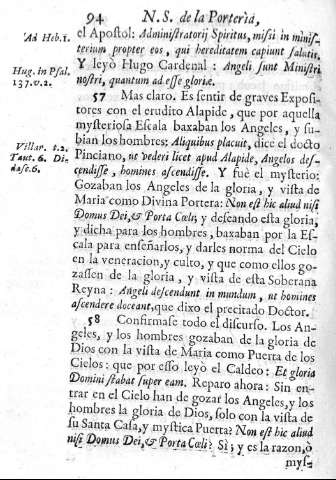 94 N. S. de la Porterìa,
Ad Heb. 1.
el Apostol: Administratorij Spiritus, missi in minis-
terium propter eos, qui hereditatem capiunt salutis.
Hug. in Psal.
137. v. 2.
Y leyò Hugo Cardenal: Angeli sunt Ministri
nostri, quantum ad esse gloriæ.
57 Mas claro. Es sentir de graves Exposi-
tores con el erudito Alapide, que por aquella
mysteriosa Escala baxaban los Angeles, y su-
Villar. t. 2.
Taut. 6. Di-
dasc. 6.
bian los hombres: Aliquibus placuit, dice el docto
Pinciano, ut vederi licet apud Alapide, Angelos des-
cendisse, homines ascendisse. Y fuè el mysterio:
Gozaban los Angeles de la gloria, y vista de
Maria como Divina Portera: Non est hic aliud nisi
Domus Dei, & Porta Cœli; y deseando esta gloria,
y dicha para los hombres, baxaban por la Es-
cala para enseñarlos, y darles norma del Cielo
en la veneracion, y culto, y que como ellos go-
zassen de la gloria, y vista de esta Soberana
Reyna: Angeli descendunt in mundum, ut homines
ascendere doceant, que dixo el precitado Doctor.
58 Confirmase todo el discurso. Los An-
geles, y los hombres gozaban de la gloria de
Dios con la vista de Maria como Puerta de los
Cielos: que por esso leyò el Caldeo: Et gloria
Domini stabat super eam. Reparo ahora: Sin en-
trar en el Cielo han de gozar los Angeles, y los
hombres la gloria de Dios, solo con la vista de
su Santa Casa, y mystica Puerta? Non est hic aliud
nisi Domus Dei, & Porta Cœli? Sì; y es la razon, ò
mys-